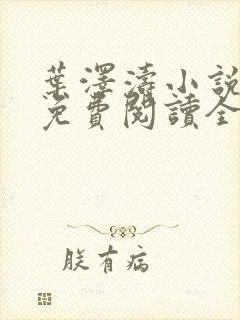 葉澤濤小說
免費閱讀全
朕有病